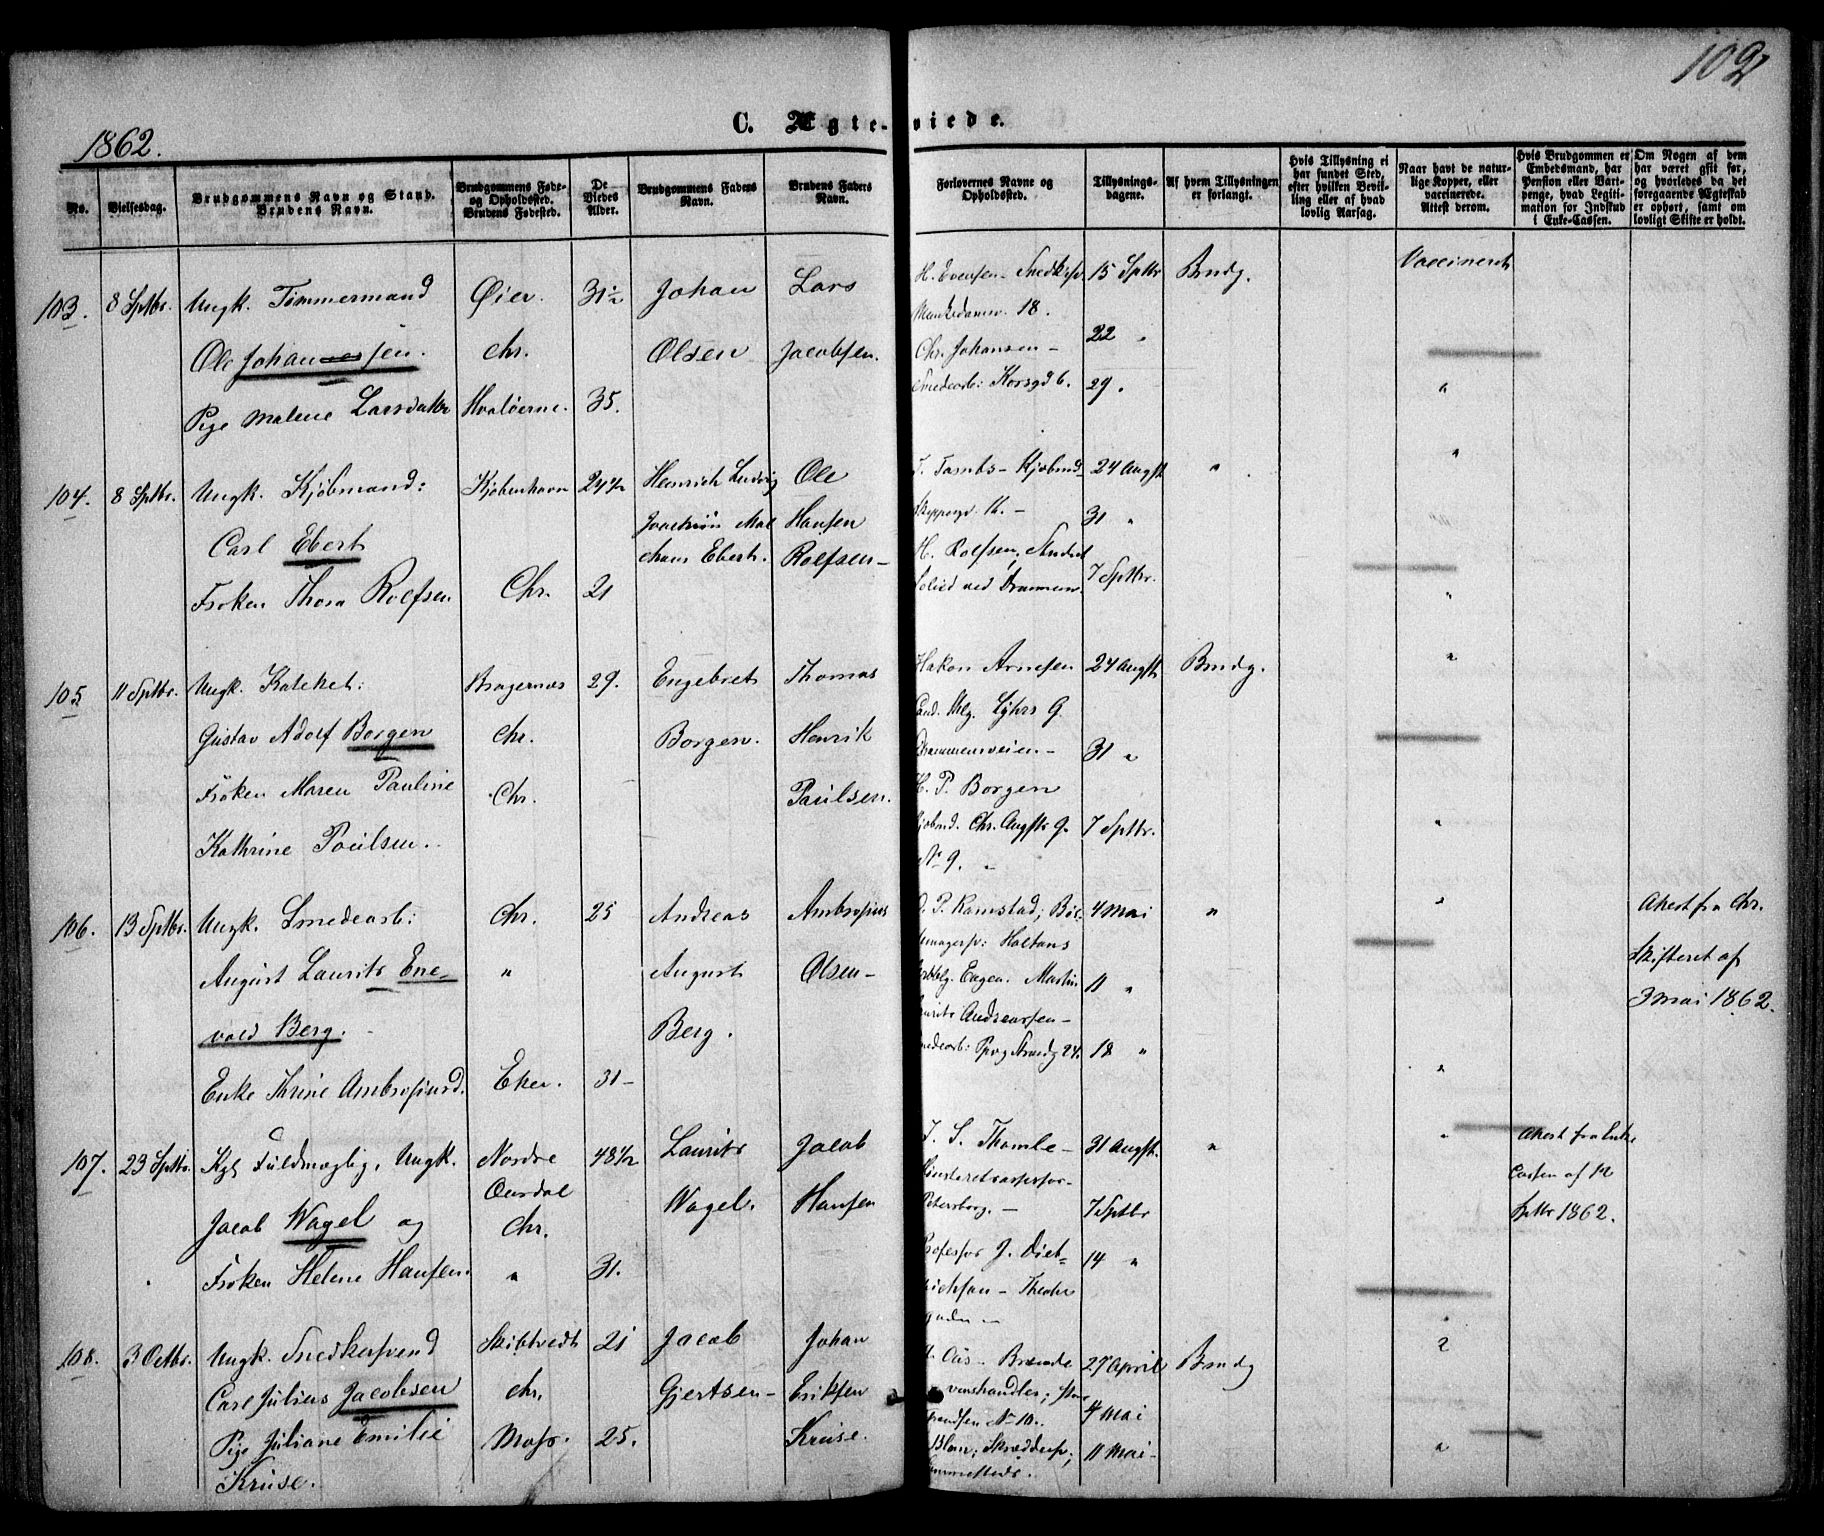 102
1862.
C. Ægte-viede.
No.
Vielsesdag.
Brudgommens Navn og Stand.
Brudens Navn.
Brudgommens Føde-
og Opholdssted.
Brudens Fødested.
De
Viedes
Alder.
Brudgommens Faders
Navn.
Brudens Faders
Navn.
Forlovernes Navne og
Opholdssted.
Tillysnings-
dagene.
Af hvem Tillysningen
er forlangt.
Hvis Tillysning ei
har fundet Sted,
efter hvilken Bevil-
ling eller af hvad
lovlig Aarsag.
Naar havt de natur-
lige Kopper, eller
vaccinerede.
Attest derom.
Hvis Brudgommen er
Embedsmand, har
Pension eller Vart-
penge, hvad Legiti-
mation for Indskud
i Enke-Cassen.
Om Nogen af dem
har været gift før,
og hvorledes da det
foregaaende Ægteskab
er ophørt, samt om
lovligt Skifte er holdt.
103. 8 Sptbr. Ungk. Tømmermand Øier. 31½ Johan Lars H. Evensen - Snedkersv. 15 Sptbr Brudg. Vaccineret
Munkedamsv. 18.
Ole Johannessen. Chr. Olsen Jacobsen. Chr. Johansen - 22 "
Pige Malene Larsdatter Hvaløerne. 35. Smedearb: Korsgd 6. 29. "
104. 8 Sptbr. Ungk. Kjøbmand: Kjøbenhavn 24½ Heinrich Ludvig Ole Kjøbmd 24 Augst "
Carl Ebert Joachim Hansen 31 "
Ebert. Rolfsen - H. Rolfsen, Student
Frøken Thora Rolfsen Chr. 21 ved Drammen 7 Sptbr. "
105 11 Sptbr. Ungk. Katechet: Bragernæs 29. Engebret Thomas Hakon Arnesen 24 Augst Brudg. "
Gustav Adolf Borgen Chr. Borgen. Henrik
Drammensveien - 31 "
Frøken Maren Pauline Chr. Paulsen. H. P. Borgen
Kathrine Poulsen. Kjøbmd. Chr. Augsts G. 7 Sptbr. "
No 9.
106. 13 Sptbr. Ungk. Smedearb: Chr. 25 Andreas Ambrosius O. P. Ramstad; Bøs- 4 Mai " " Attest fra Chr.
semagersv: Holtans
August Laurits Ene- " August Olsen - Martin 11 " Skifteret af
vold Berg. Berg. Laurits Andreassen - 3 Mai 1862.
Smedearb: 18 "
Enke Thrine Ambrosiusd. Eker. 31 - "
107. 23 Sptbr. Kgl Fuldmægtig, Ungk. Nordre 48½ Laurits Jacob J. S. Thomle - 31 Augst. " " Attest fra Enke
Aurdal Cassen af 12
Jacob Wagel og Chr. Wagel. Hansen Petersborg. - 7 Sptbr Sptbr 1862.
Frøken Helene Hansen. " 31. Professor J. Diet- 14 "
richson - Theater
gaden -
108. 3 Octbr. Ungk. Snedkersvend Skibtvedt 21 Jacob Johan Aas - Brænde 27 April Brudg "
Carl Julius Jacobsen Chr. Gjertsen - Eriksen vinshandler; Stor-
No 10. 4 Mai
Pige Juliane Emilie Moss. 25. Kruse. Skrædersv; 11 Mai - "
Kruse.